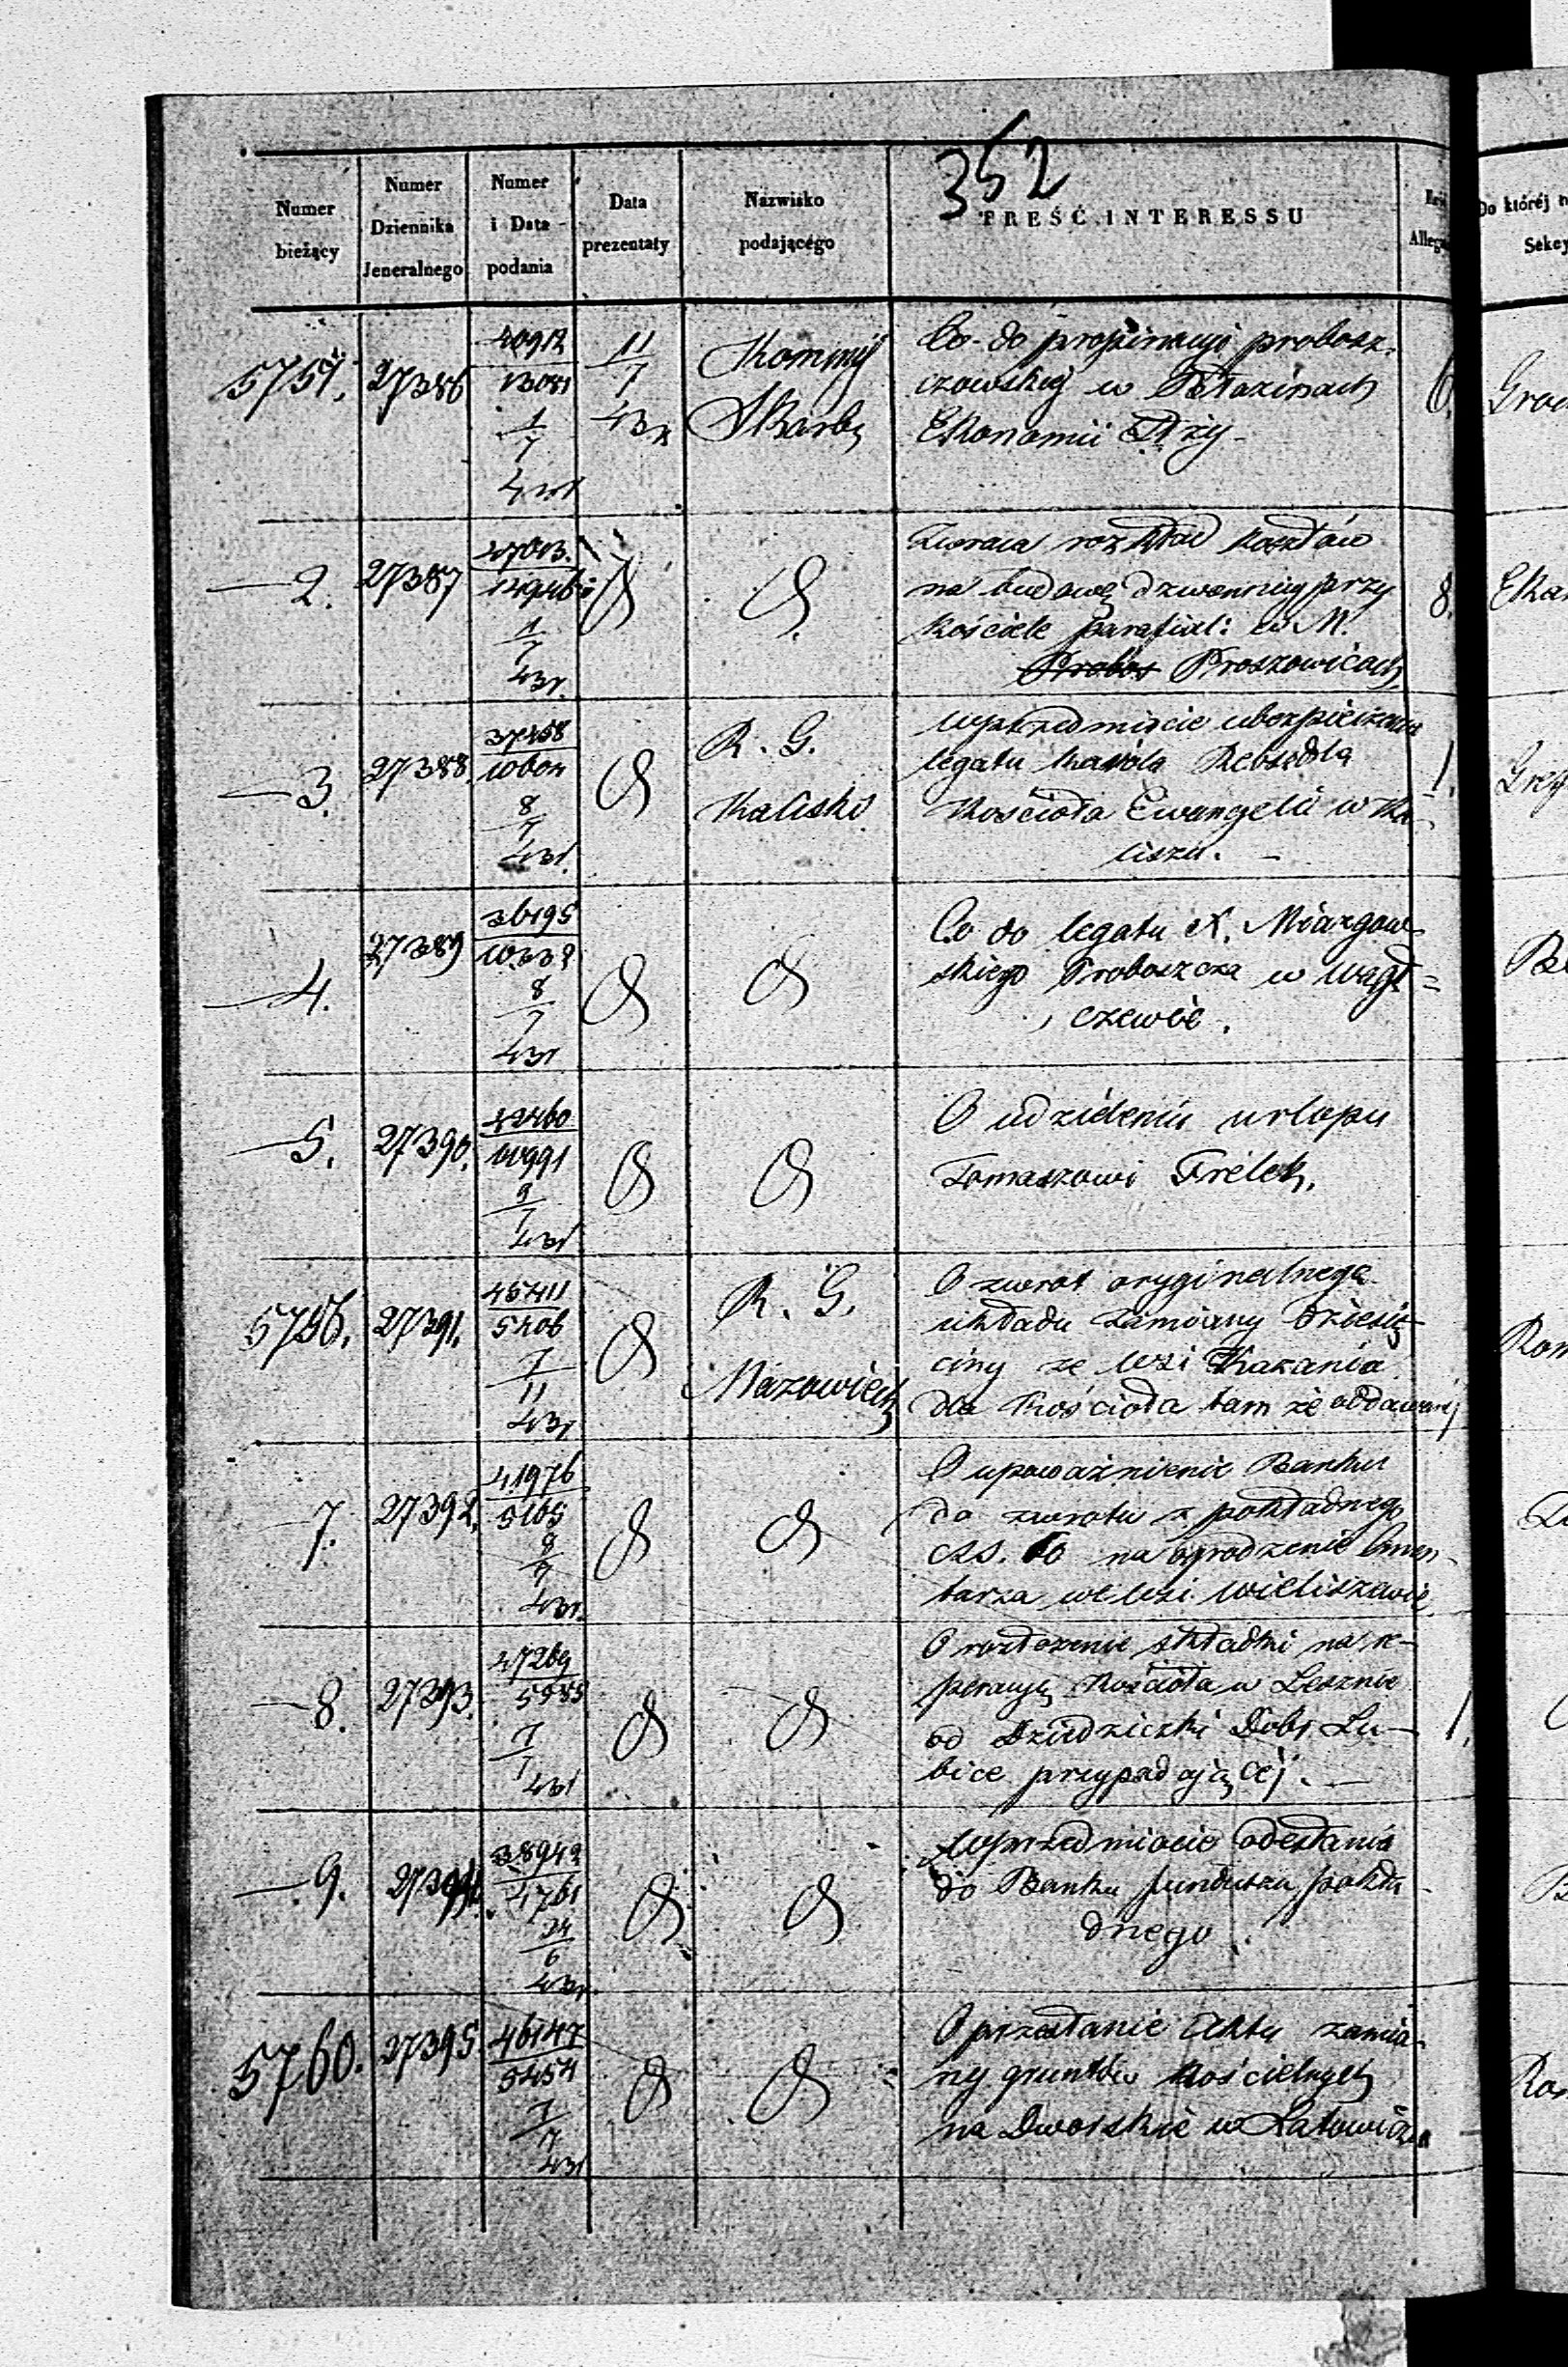 352
Numer bieżący
Numer Dziennika Jeneralnego
Numer i Data podania
Data prezentaty
Nazwisko podającego
TREŚĆ INTERESSU
Do któréj
5751. 27386
40912
13081
1/7
11/7
Kommij
Skarbu
Co do propinacyi probosz-
czowskiej w
Ekonomii
6.
2. 27387
1/7
43r.
Zwraca rozkład kosztów
na budowę dzwonnicy przy
Kościele parafial: w M.
Probos Proszowicach
8.
3. 27388.
8/7
43r.
R. G.
Kaliski
W przedmiocie ubezpieczenia
legatu Karola
Kościoła Ewangelic w Ka-
liszu.
1.
4. 27389
36195
8/7
43r
Co do legatu X. Miazgow-
skiego Proboszcza w Wągł-
czewie.
5. 27390.
42460
10991
9/7
43r
O udzielenie urlopu
Tomaszowi Frélek.
5756. 27391.
45411
5406
7/11
43r
R. G.
Mazowieck
O zwrot oryginalnego
układu zamiany Dziesię-
ciny ze wsi Kazania
dla Kościoła tam że oddawanej
7. 27392.
41976
5105
8/7
43r.
O upoważnienie Banku
do zwrotu z pokładnego
rs. na ogrodzenie Cmen-
tarza we wsi Wieliszewie
8. 27393.
47269
43r
O rozłożenie składki na re-
peracyę Kościoła w Lesznie
od Dziedziczki Dobr Lu-
bice przypadającej.
1.
9. 27394.
38942
4761
24/6
43r.
W przedmiocie odesłania
do Banku funduszu pokła-
dnego
5760. 27395.
46147
5454
7/7
43r
O przesłanie Aktu zamia-
ny gruntów Kościelnych
na Dworskie w Latowiczu